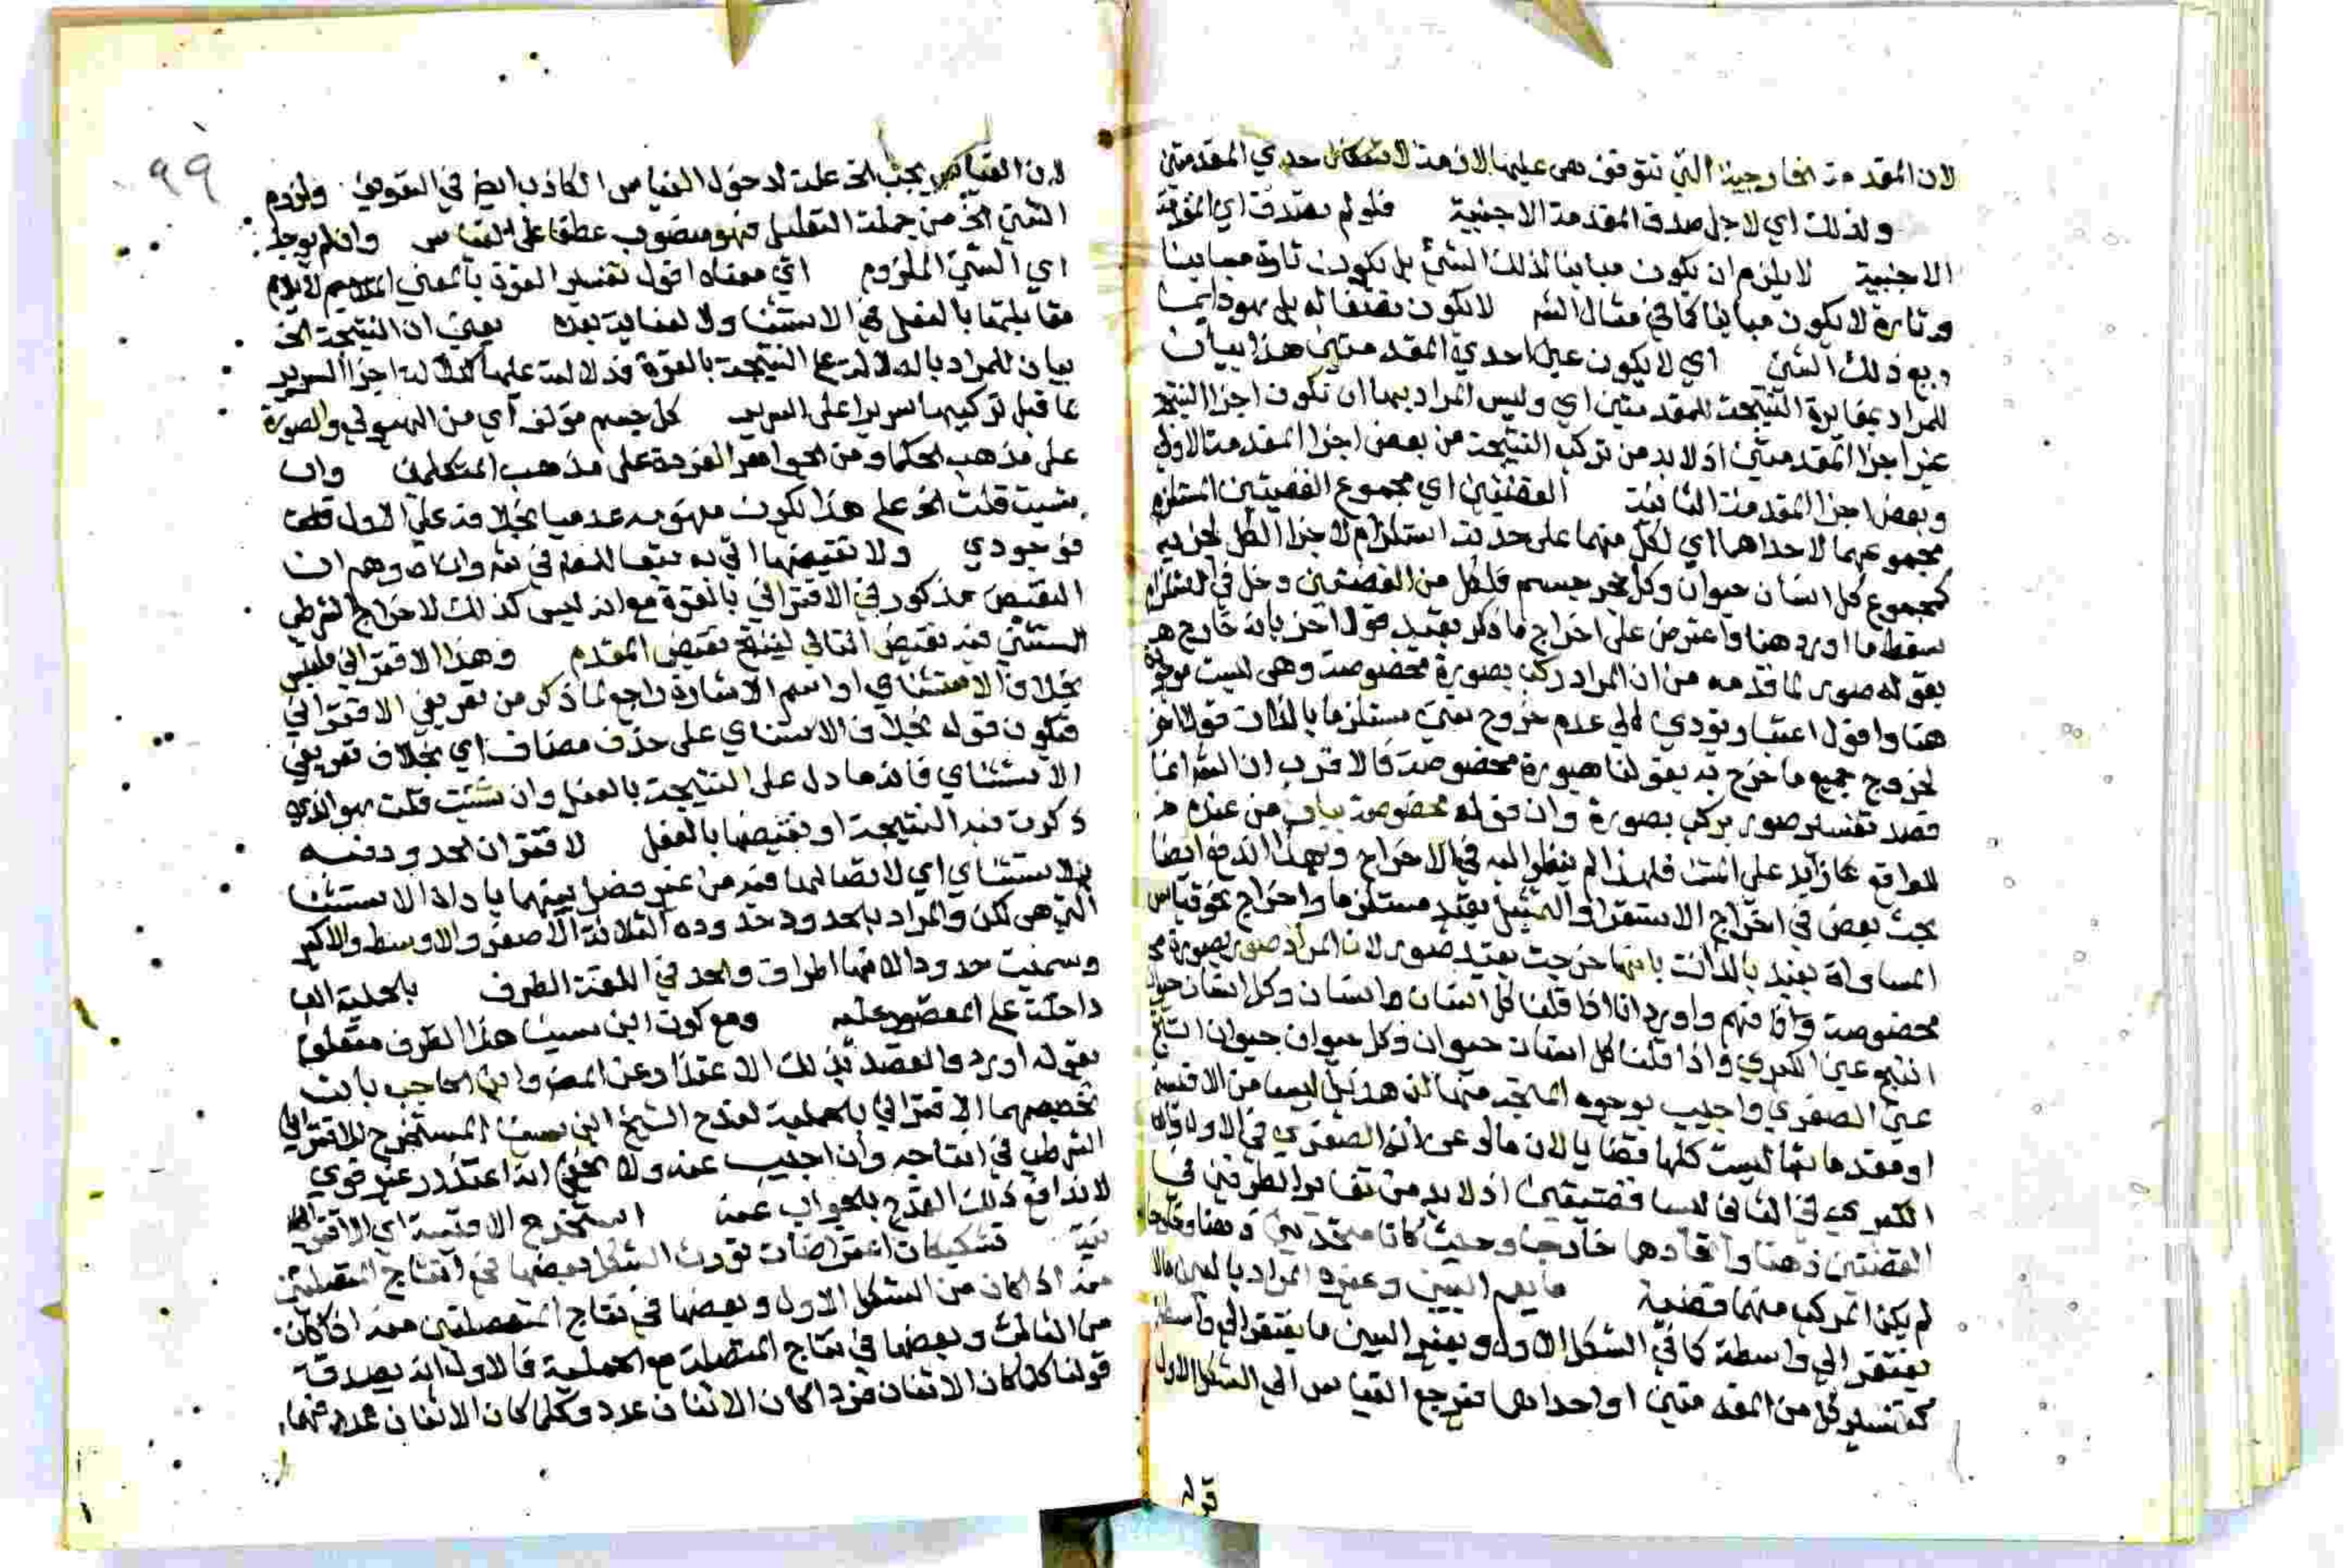 لان المقدمة الخارجية التي تتوقف هي عليها لازمة لانعكاس احدي المقدمتين
ولذلك اي لاجل صدق المقدمة الاجنبية فلو لم تصدق اي المقدمة
الاجنبية لا يلزم ان يكون مباينا لذلك الشئ بل يكون تارة مباينا
وتارة لا يكون مباينا كما في مثال الشر لا يكون نصفا له بل هو دايما
ربع ذلك الشئ اي لا يكون عين احدي المقدمتين هذا بيان
للمراد بمغايرة النتيجة للمقدمتين اي وليس المراد بها ان تكون اجزا النتيجة
غير اجزا المقدمتين اذ لابد من تركب النتيجة من بعض اجزا المقدمة الاولي
وبعض اجزا المقدمة الثانية القضيتين اي مجموع القضيتين المستلزم
مجموعهما لاحداهما اي لكل منهما على حدته استلزام لاجزا الكل لجزييه
كمجموع كل انسان حيوان وكل حجر جسم فلكل من القضيتين دخل في استلزام
سقط ما اورد هنا واعترض على اخراج ما ذكر بقيد قول اخر بانه خارج
بقوله صور لما قدمه من ان المراد ركب بصورة مخصوصة وهي ليست موجودة
هنا واقول اعتبار يؤدي الي عدم خروج شئ مستلزما بالذات قولا اخر
لخروج جميع ما خرج به بقولنا بصورة مخصوصة فالاقرب ان الشر انما
قصد تفسير صور بركب بصورة وان قوله مخصوصة بيان من عنده
للواقع زايد على المتن فلهذا لم ينظر اليه في الاخراج وبهذا اندفع ايضا
بحث بعض في اخراج الاستقرا والتمثيل بقيد مستلزما واخراج نحو قياس
المساواة بقيد بالذات بانها خرجت بقيد صور لان المراد صور بصورة
مخصوصة وافهم واورد انا اذا قلنا كل انسان انسان وكل انسان حيوان
انتج عين الكبري واذا قلنا كل انسان حيوان وكل حيوان حيوان انتج
عين الصغري واجيب بوجوه المتجه منها ان هذين ليسا من الاقيسة
اذ مقدماتها ليست كلها قضايا لان ما ادعي انه الصغري في الاول وانه
الكبري في الثاني ليسا قضيتين اذ لابد من تغاير الطرفين في
القضيتين ذهنا واتحادهما خارجا وحيث كانا متحدين ذهنا وخارجا
لم يكن المركب منهما قضية ما يعم البين وغيره المراد بالبين ما لا
يفتقر الي واسطة كما في الشكل الاول وبغير البين ما يفتقر الي واسطة
كعكس كل من المقدمتين او احداهما فيرجع القياس الي الشكل الاول
قوله
٩٩
لان القياس يجب الخ علة لدخول القياس الكاذب ايضا في التعريف ولزوم
الشئ الخ من جملة التعليل فهو منصوب عطفا على القياس وان لم يوجد
اي الشئ الملزوم اي معناه اقول تفسير القوة بالمعني لا يلايم
مقابلتها بالفعل في الاستثنا ولا لعناية بعده يعني ان النتيجة الخ
بيان للمراد بالدلالة على النتيجة بالقوة فدلالته عليها كدلالة اجزا السرير
قبل تركيبها سريرا على السرير كل جسم مؤلف اي من الهيولي والصورة
على مذهب الحكما ومن الجواهر الفردة على مذهب المتكلمين وان
شيت قلت الخ على هذا يكون مفهومه عدميا بخلافه على الاول فانه
وجودي ولا نقيضها اتي به تبعا للقوم في شر وايهام وهم ان
النقيض مذكور في الاقتراني بالقوة مع انه ليس كذلك لاخراج الشرطي
المستثني فيه نقيض التالي لينتج نقيض المقدم وهذا الاقتراني
بخلاف الاستثناي او اسم الاشارة راجع لما ذكر من تعريف الاقتراني
فيكون قوله بخلاف الاستثناي على حذف مضاف اي بخلاف تعريف
الاستثناي فانه ما دل على النتيجة بالفعل وان شئت قلت هو الذي
ذكرت فيه النتيجة او نقيضها بالفعل لاقتران الحدود فيه
الاستثناي اي لاتصالها فيه من غير فصل بينهما باداة الاستثنا
التي هي لكن والمراد بالحدود حدوده الثلاثة الاصغر والاوسط والاكبر
وسميت حدودا لانها اطراف والحد في اللغة الطرف بالحملية البا
داخلة على المقصور عليه ومع كون ابن سينا هذا الظرف متعلق
بقوله اورد والقصد بذلك الاعتذار عن المص وابن الحاجب بان
تخصيصهما الاقتراني بالحملية لقدح الشيخ ابن سينا المستخرج للاقتراني
الشرطي في انتاجه وان اجيب عنه ولا يخفي انه اعتذار غير قوي
لاندافع ذلك القدح بالجواب عنه استخرج الاقيسة اي الاقترانية
تشكيكات اعتراضات توردث الشكل بعضها في انتاج المتصلتين
منه اذا كان من الشكل الاول وبعضها في نتاج المتصلتين منه اذا كان
من الثالث وبعضها في نتاج المتصلة مع الحملية فالاول انه يصدق
قولنا كلما كان الاثنان فردا كان الاثنان عددا وكلما كان الاثنان عددا